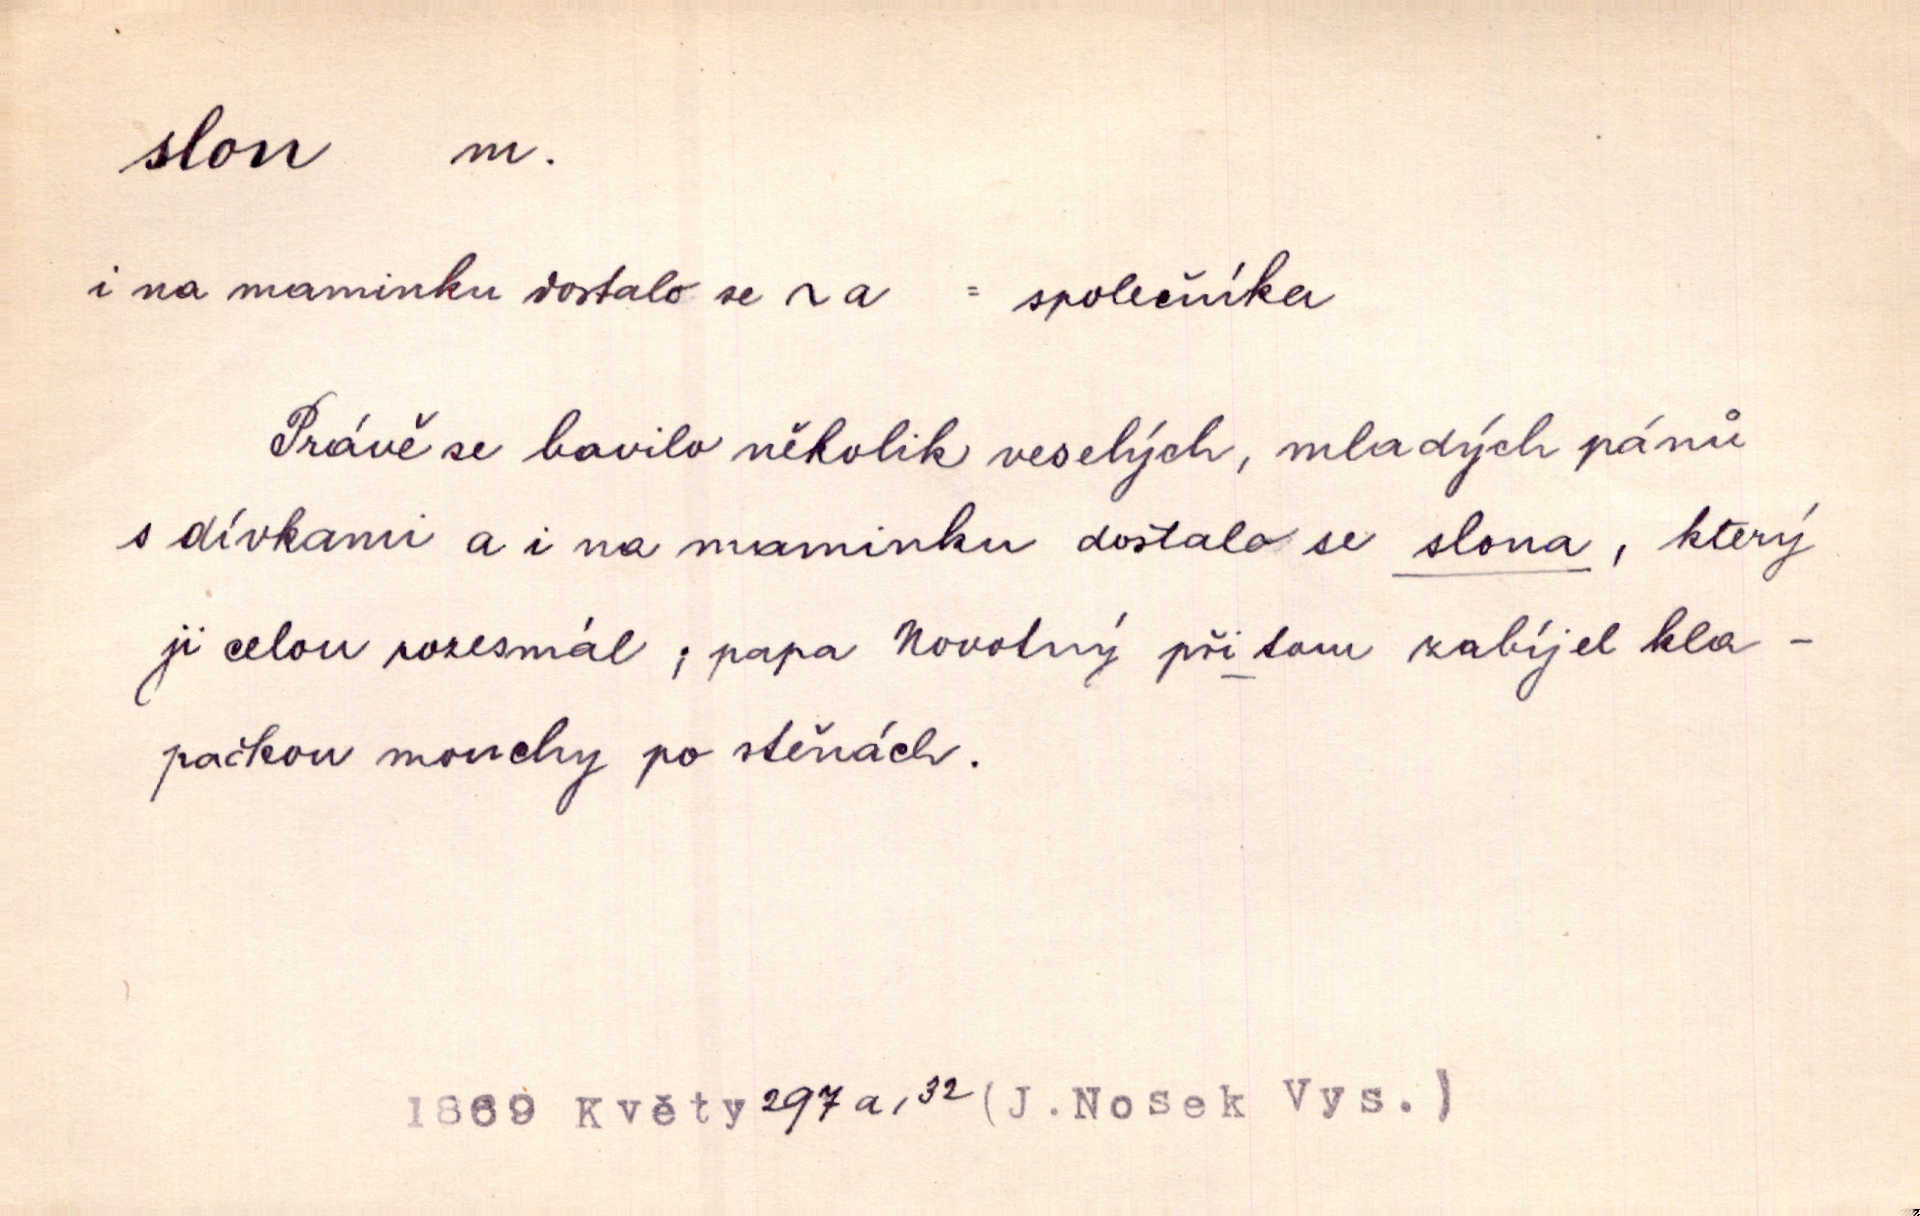 slon m.
i na maminku dostalo se ~a = společníka
Právě se bavilo několik veselých, mladých pánů
s dívkami a i na maminku dostalo se slona, který
ji celou rozesmál; papa Novotný při tom zabíjel kla-
pačkou mouchy po stěnách.
1869 Květy 297 a, 32 (J. Nosek Vys.)